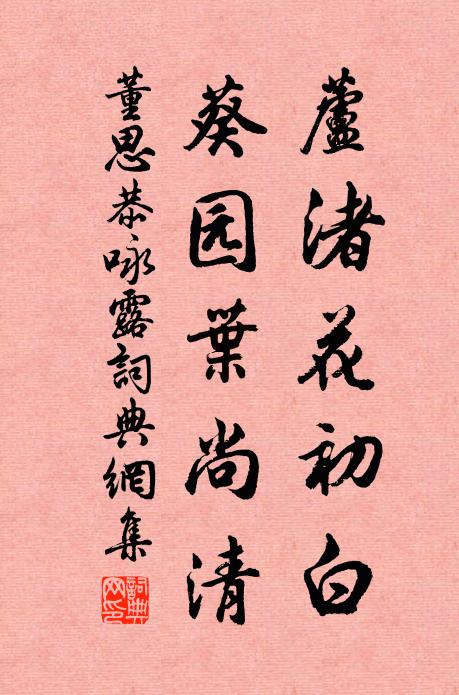 蘆渚花初白
葵园葉尚清
董思恭咏露詞典網集
詞典網印